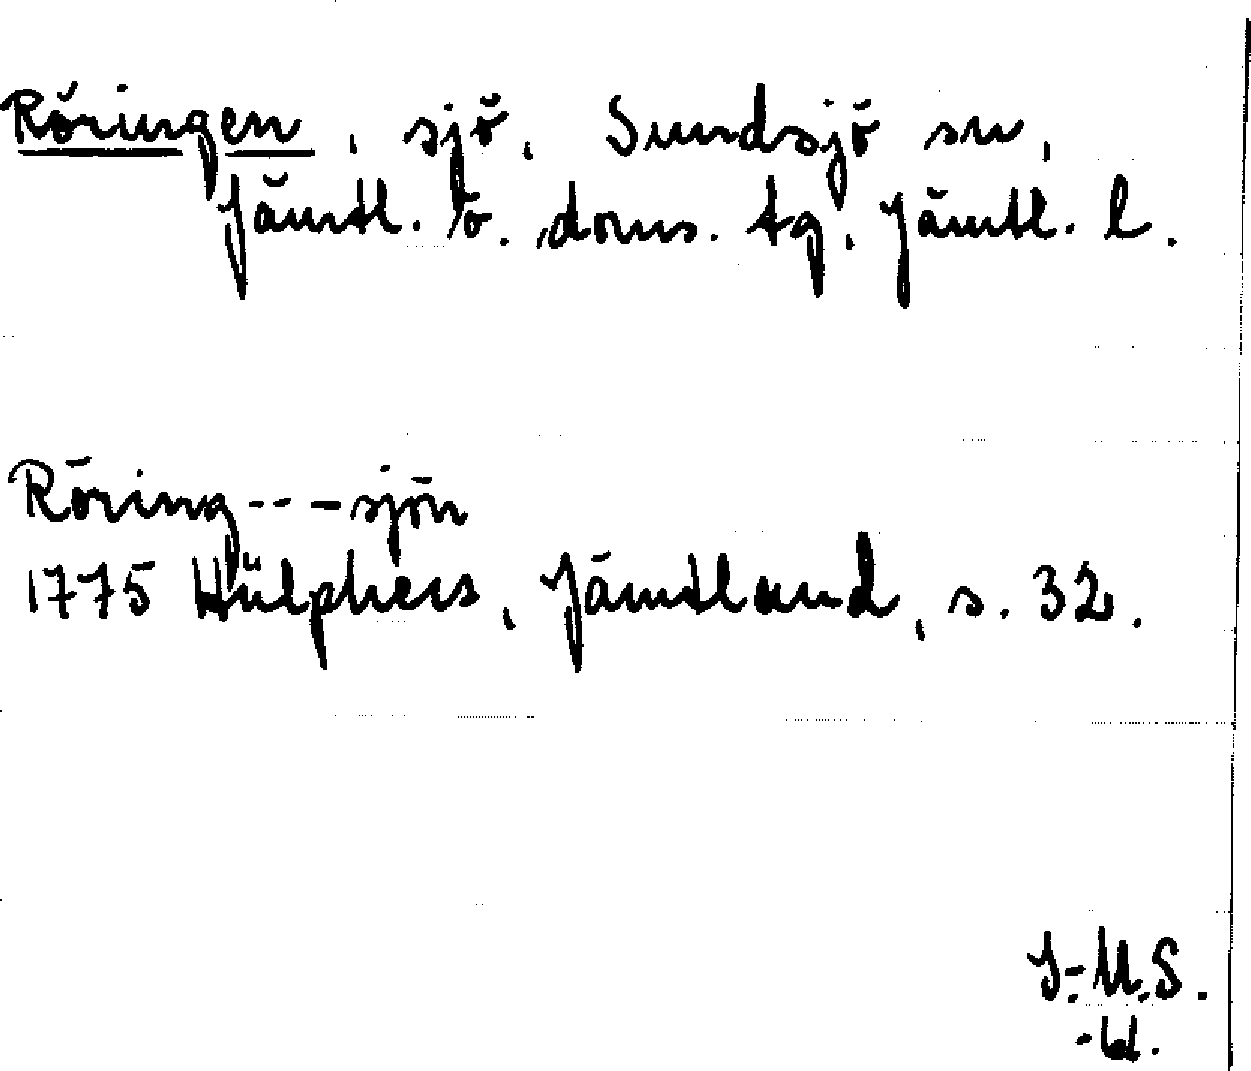 Röringen, sjö, Sundsjö sn,
Jämtl. ö. doms. tg, Jämtl. l.
Röring---sjön
1775 Hülphers, Jämtland, s. 32.
I.-M.S.
-61.